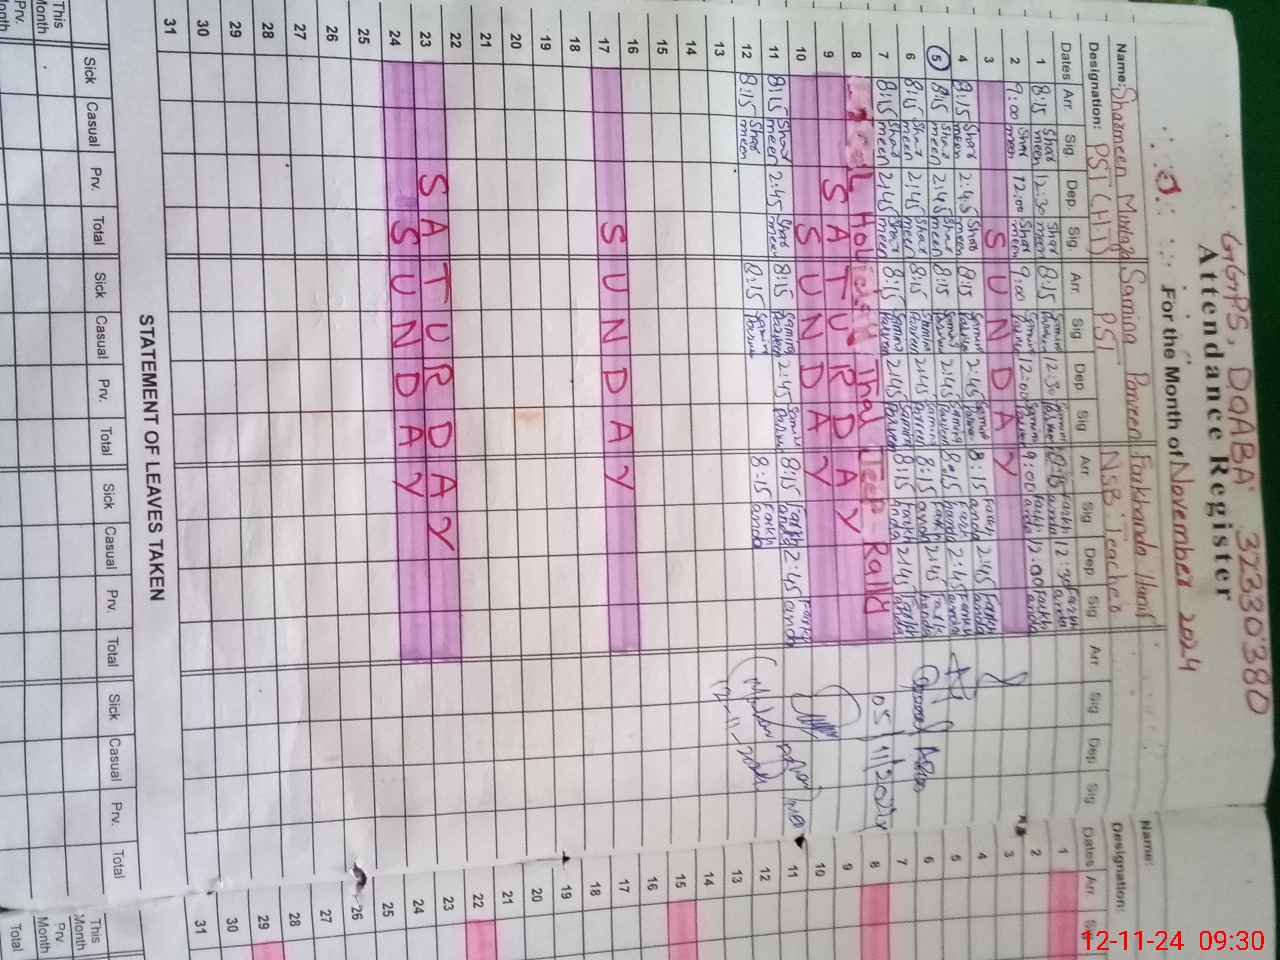 GGPS, DOABA 32330380
Attendance Register
For the Month of November 2024
Name: Sharmeen Samina Parveen Farkhanda
Designation: PST (H.T) PST NSB Teacher
Dates Arr. Sig Dep. Sig. Arr. Sig Dep. Sig Arr Sig Dep Sig Arr Sig Dep Sig
1 8:15 Sharmeen 12:30 Sharmeen 8:15 12:30 8:15 Farkhanda 12:30 Farkhanda
2 9:00 Sharmeen 12:00 Sharmeen 9:00 12:00 9:00 Farkhanda 12:00 Farkhanda
3 SUNDAY
4 8:15 Sharmeen 2:45 Sharmeen 8:15 2:45 8:15 Farkhanda 2:45 Farkhanda
5 8:15 Sharmeen 2:45 Sharmeen 8:15 Samina Parveen 2:45 Samina Parveen 8:15 Farkhanda 2:45 Farkhanda
6 8:15 Sharmeen 2:45 Sharmeen 8:15 Samina Parveen 2:45 Samina Parveen 8:15 Farkhanda 2:45 Farkhanda
7 8:15 Sharmeen 2:45 Sharmeen 8:15 Samina Parveen 2:45 Samina Parveen 8:15 Farkhanda 2:45 Farkhanda
05/11/2024
8 Local Holiday Thal Jeep Rally
9 SATURDAY
10 SUNDAY
11 8:15 Sharmeen 2:45 Sharmeen 8:15 Samina Parveen 2:45 Samina Parveen 8:15 Farkhanda 2:45 Farkhanda
12 8:15 Sharmeen 8:15 Samina Parveen 8:15 Farkhanda
12-11-2024
13
14
15
16
17 SUNDAY
18
19
20
21
22
23 SATURDAY
24 SUNDAY
25
26
27
28
29
30
31
STATEMENT OF LEAVES TAKEN
Sick Casual Prv. Total Sick Casual Prv. Total Sick Casual Prv. Total Sick Casual Prv. Total
This Month
Prv. Month
Name:
Designation:
Dates Arr.
1
2
3
4
5
6
7
8
9
10
11
12
13
14
15
16
17
18
19
20
21
22
23
24
25
26
27
28
29
30
31
This Month
Prv Month
Total
12-11-24 09:30